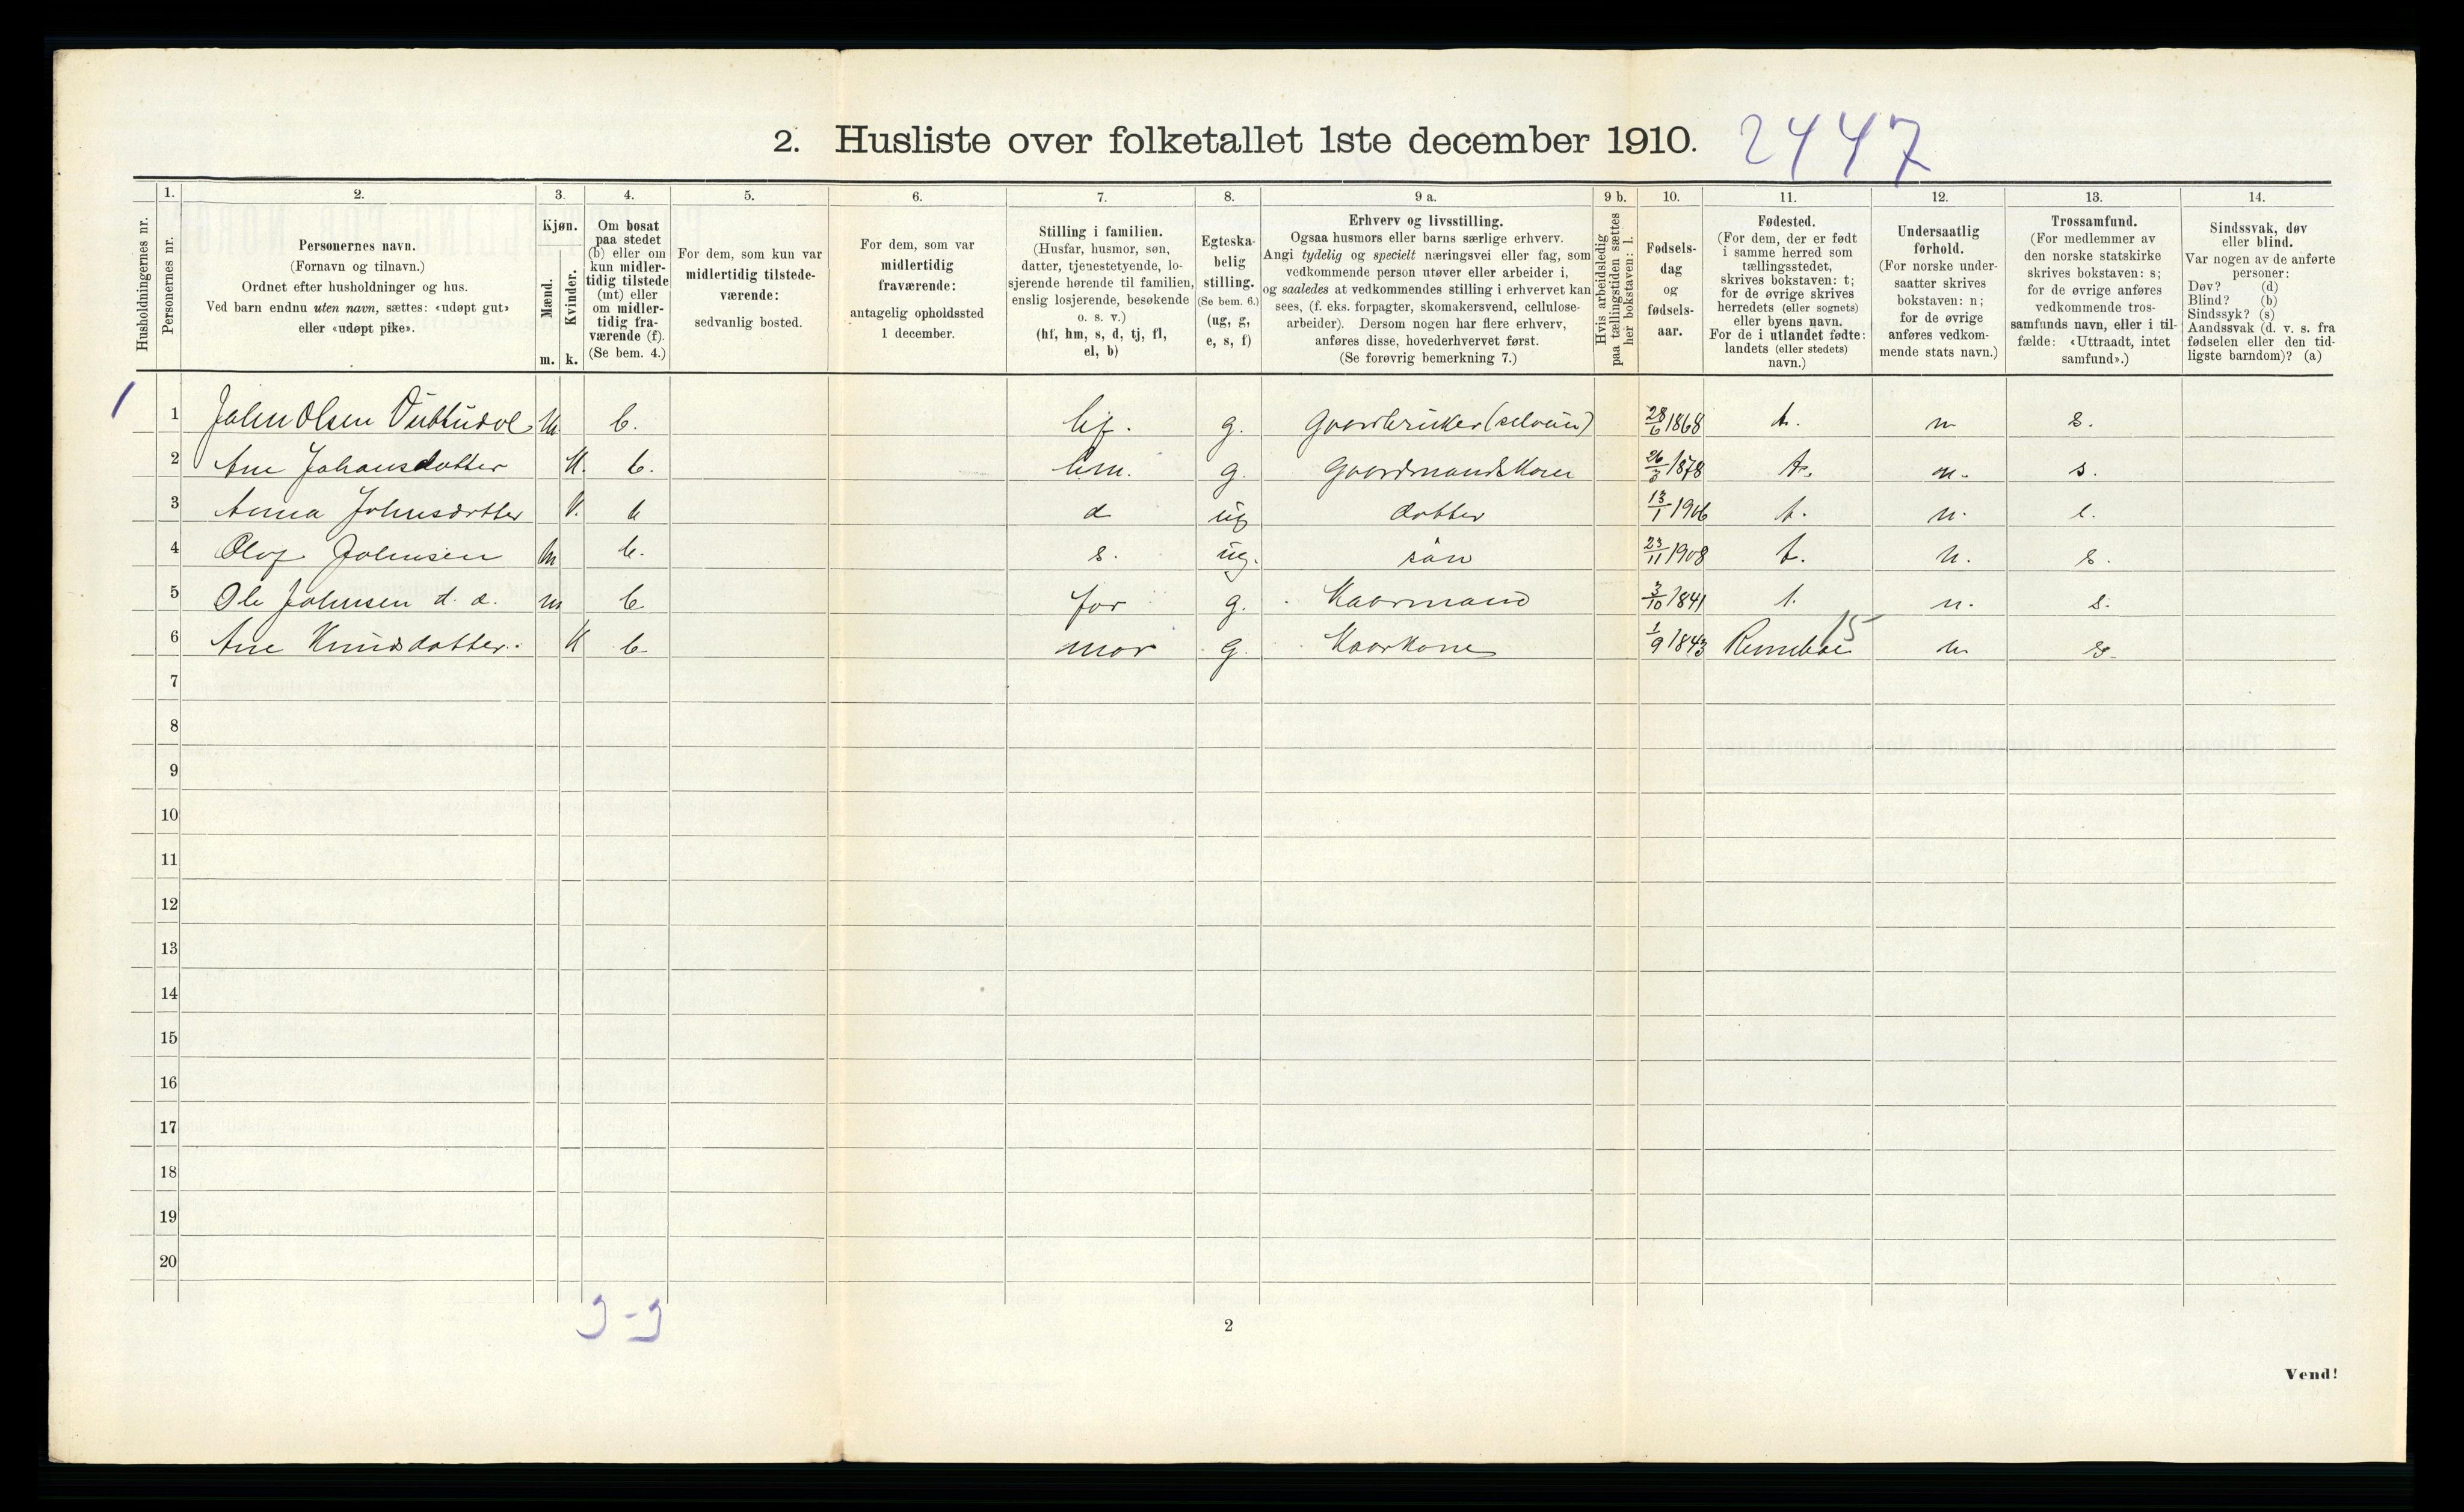 2. Husliste over folketallet 1ste december 1910. 2447
Husholdningernes nr.
1.
Personernes nr.
2.
Personernes navn.
(Fornavn og tilnavn.)
Ordnet efter husholdninger og hus.
Ved barn endnu uten navn, sættes: «udøpt gut»
eller «udøpt pike».
3.
Kjøn.
Mænd.
Kvinder.
m. k.
4.
Om bosat
paa stedet
(b) eller om
kun midler-
tidig tilstede
(mt) eller
om midler-
tidig fra-
værende (f).
(Se bem. 4.)
5.
For dem, som kun var
midlertidig tilstede-
værende:
sedvanlig bosted.
6.
For dem, som var
midlertidig
fraværende:
antagelig opholdssted
1 december.
7.
Stilling i familien.
(Husfar, husmor, søn,
datter, tjenestetyende, lo-
sjerende hørende til familien,
enslig losjerende, besøkende
o. s. v.)
(hf, hm, s, d, tj, fl,
el, b)
8.
Egteska-
belig
stilling.
(Se bem. 6.)
(ug, g,
e, s, f)
9 a.
Erhverv og livsstilling.
Ogsaa husmors eller barns særlige erhverv.
Angi tydelig og specielt næringsvei eller fag, som
vedkommende person utøver eller arbeider i,
og saaledes at vedkommendes stilling i erhvervet kan
sees, (f. eks. forpagter, skomakersvend, cellulose-
arbeider). Dersom nogen har flere erhverv,
anføres disse, hovederhvervet først.
(Se forøvrig bemerkning 7.)
9 b.
Hvis arbeidsledig
paa tællingstiden sættes
her bokstaven: l.
10.
Fødsels-
dag
og
fødsels-
aar.
11.
Fødested.
(For dem, der er født
i samme herred som
tællingsstedet,
skrives bokstaven: t;
for de øvrige skrives
herredets (eller sognets)
eller byens navn.
For de i utlandet fødte:
landets (eller stedets)
navn.)
12.
Undersaatlig
forhold.
(For norske under-
saatter skrives
bokstaven: n;
for de øvrige
anføres vedkom-
mende stats navn.)
13.
Trossamfund.
(For medlemmer av
den norske statskirke
skrives bokstaven: s;
for de øvrige anføres
vedkommende tros-
samfunds navn, eller i til-
fælde: «Uttraadt, intet
samfund».)
14.
Sindssvak, døv
eller blind.
Var nogen av de anførte
personer:
Døv? (d)
Blind? (b)
Sindssyk? (s)
Aandssvak (d. v. s. fra
fødselen eller den tid-
ligste barndom)? (a)
1 1 John Olsen m b. hf. g. Gaardbruker (selveier) 28/6 1868 t. n s.
2 Ane Johansdatter K. b. hm. g. Gaardmandskone 26/3 1878 t. n. s.
3 Anna Johnsdatter K. b d ug datter 13/1 1906 t. n. s.
4 Olaf Johnsen m b. s. ug. søn 23/11 1908 t. n. s.
5 Ole Johnsen d. æ. m b far g. Kaarmand 3/10 1841 t. n. s.
6 Ane Knudsdatter. K b mor g. Kaarkone 1/9 1843 15 n. s.
7
8
9
10
11
12
13
14
15
16
17
18
19
20
3-3
2
Vend!